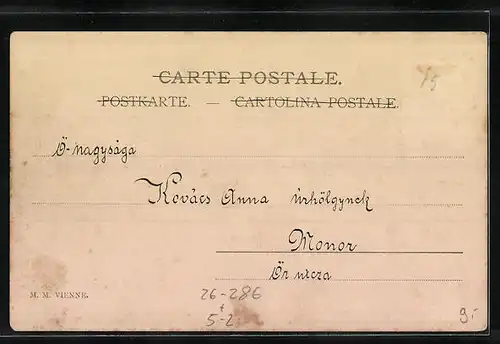 CARTE POSTALE.
POSTKARTE. — CARTOLINA POSTALE.
Ő-nagysága
Kovács Anna úrhölgynek
Monor
Őr utcza
M. M. VIENNE.
26-286
5-2
9.-